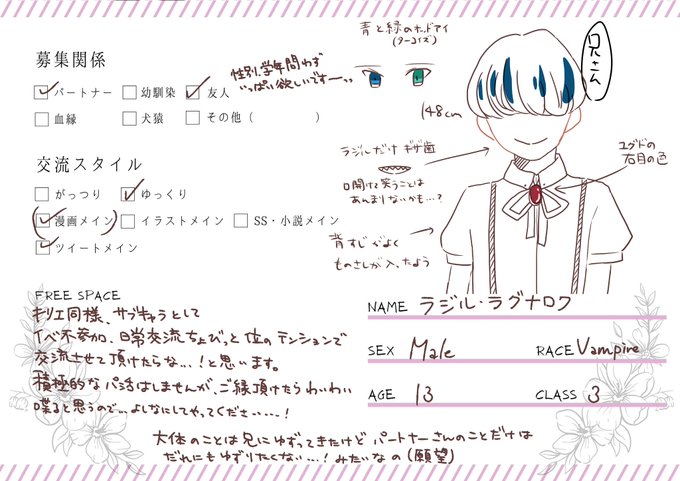 募集関係
パートナー 幼馴染 友人
血縁 犬猿 その他（ ）
性別、学年問わず
いっぱい欲しいですーー、、
交流スタイル
がっつり ゆっくり
（漫画メイン） イラストメイン SS・小説メイン
ツイートメイン
青と緑のオッドアイ
（ターコイズ）
兄さん
148cm
ラジルだけ ギザ歯
口開けて笑うことは
あんまりないかも…?
ユグドの
右目の色
背すじがよく
ものさしが入ったよう
FREE SPACE
キリエ同様、サブキャラとして
イベ不参加、日常交流ちょびっと位のテンションで
交流させて頂けたらな…!と思います。
積極的なパ活はしませんが、ご縁頂けたらわいわい
喋ると思うので…よしなにしてやってください……!
NAME ラジル・ラグナロク
SEX Male RACE Vampire
AGE 13 CLASS 3
大体のことは兄にゆずってきたけど パートナーさんのことだけは
だれにもゆずりたくない…! みたいなの（願望）